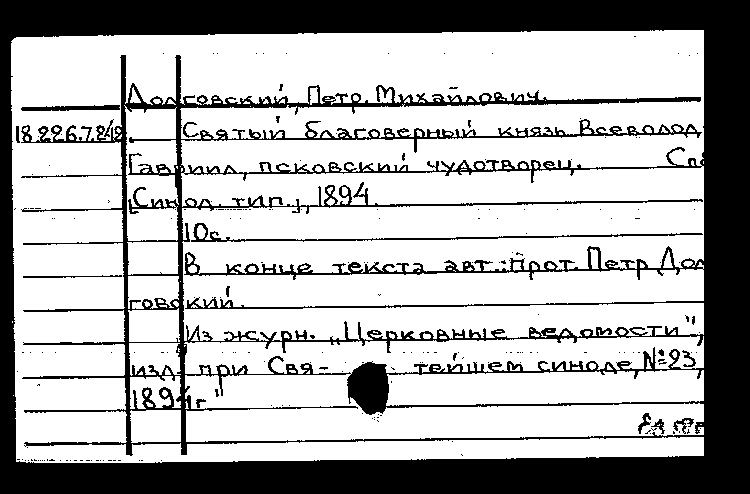 Долговский, Петр Михайлович.
18.226.7.242. Святый благоверный князь Всеволод
Гавриил, псковский чудотворец. Спб
[Синод. тип.], 1894.
10с.
В конце текста авт.: прот. Петр Дол
говский.
Из журн. „Церковные ведомости",
изд. при Свя- тейшем синоде, №23,
1894г"